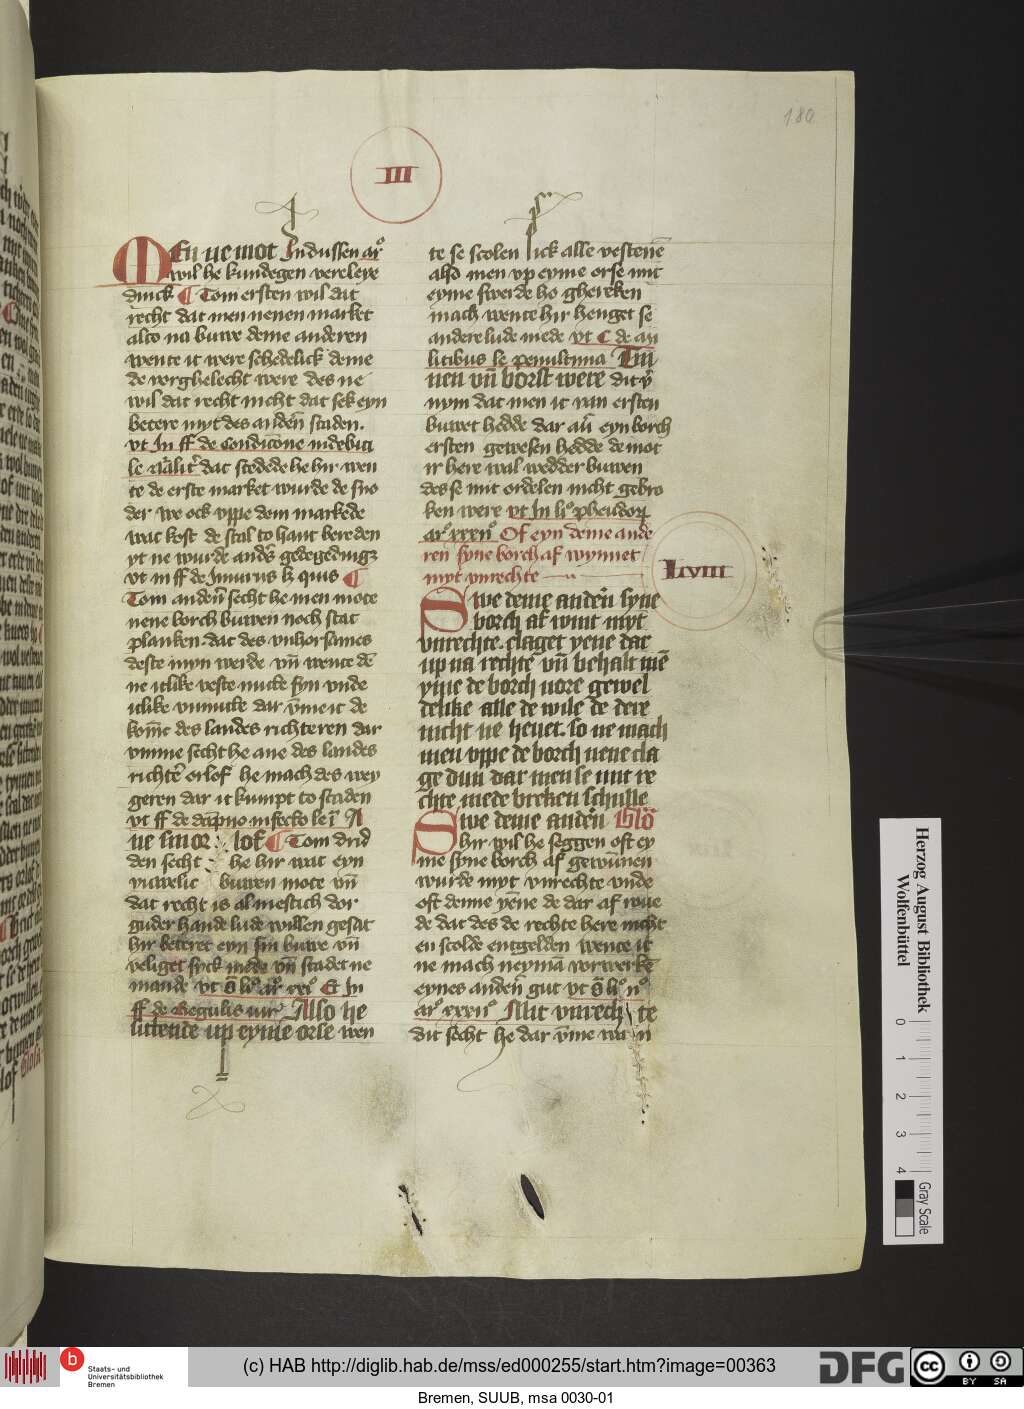 180
III
MEn ne mot Jn dussen ar°
wil he kundegen vereleye
dinck Tom ersten wil dat
recht dat men nenen market
also na buwe deme anderen
wente it were schedelick deme
de vorghelecht were des ne
wil dat recht nicht dat sek eyn
betere myt des anderen scaden.
vt Jn ff de condicione indebiti
le dat stedede he hir wen
te de erste market wurde de sno
der we ock vppe dem markede
wat kost de stal to hant bereden
yt ne wurde anders gedegedingz
vt in ff de quis
Tom anden secht he men mote
nene borch buwen noch stat
planken. dat des vnhorsames
deste myn werde vn wente de
ne itlike veste nutte syn vnde
itlike vnnutte dar vme it de
kome des landes richteren dar
vmme secht he ane des landes
richter orlof he mach des wey
geren dar it kumpt to scaden
vt ff de dapno infecto le i A
ne sinor lof Tom drid
den secht he hir wat eyn
buwen mote vn
dat recht is almestich dor
guder hande lude willen gesat
hir beteret eyn sin buwe vn
veliget syck mede vn scadet ne
mande vt ar° xxi° Et Jn
ff de Regulis iur Also he
littende up eyme orse wen
te se scolen sick alle vestene
also men vp eyme orse mit
eyme swerde ho ghereken
mach wente hir henget se
andere lude mede vt C de an
litibus le penultima Tin
nen vn borst were dit v
nym dat men it van ersten
buwet hedde dar an eyn borch
ersten gewesen hedde de mot
ir here wal wedder buwen
des se mit ordelen nicht gebro
ken were vt Jn
ar° xxxii° Of eyn deme ande
ren syne borch af wynnet
myt vnrechte
LVIII
Swe deme anden syne
borch af wint myt
vnrechte. claget yene dar
up na rechte vn behalt me
yme de borch vore gewel
delike alle de wile de dere
nicht ne hevet. so ne mach
men vppe de borch nene cla
ge dun dar men se mit re
chte mede breken schulle
Swe deme anden Glo
hir wil he seggen oft ey
me syne borch af gewunnen
wurde myt vnrechte vnde
oft deme yene de dar af wne
de dat des de rechte here nicht
en scolde entgelden wente it
ne mach neyman vorwerke
eynes anden gut vt
ar° xxxii° Mit vnrech te
dit secht he dar vme wa n
Herzog August Bibliothek
Wolfenbüttel
0 1 2 3 4
Gray Scale
b
Staats- und
Universitätsbibliothek
Bremen
(c) HAB http://diglib.hab.de/mss/ed000255/start.htm?image=00363
DFG
cc BY SA
Bremen, SUUB, msa 0030-01